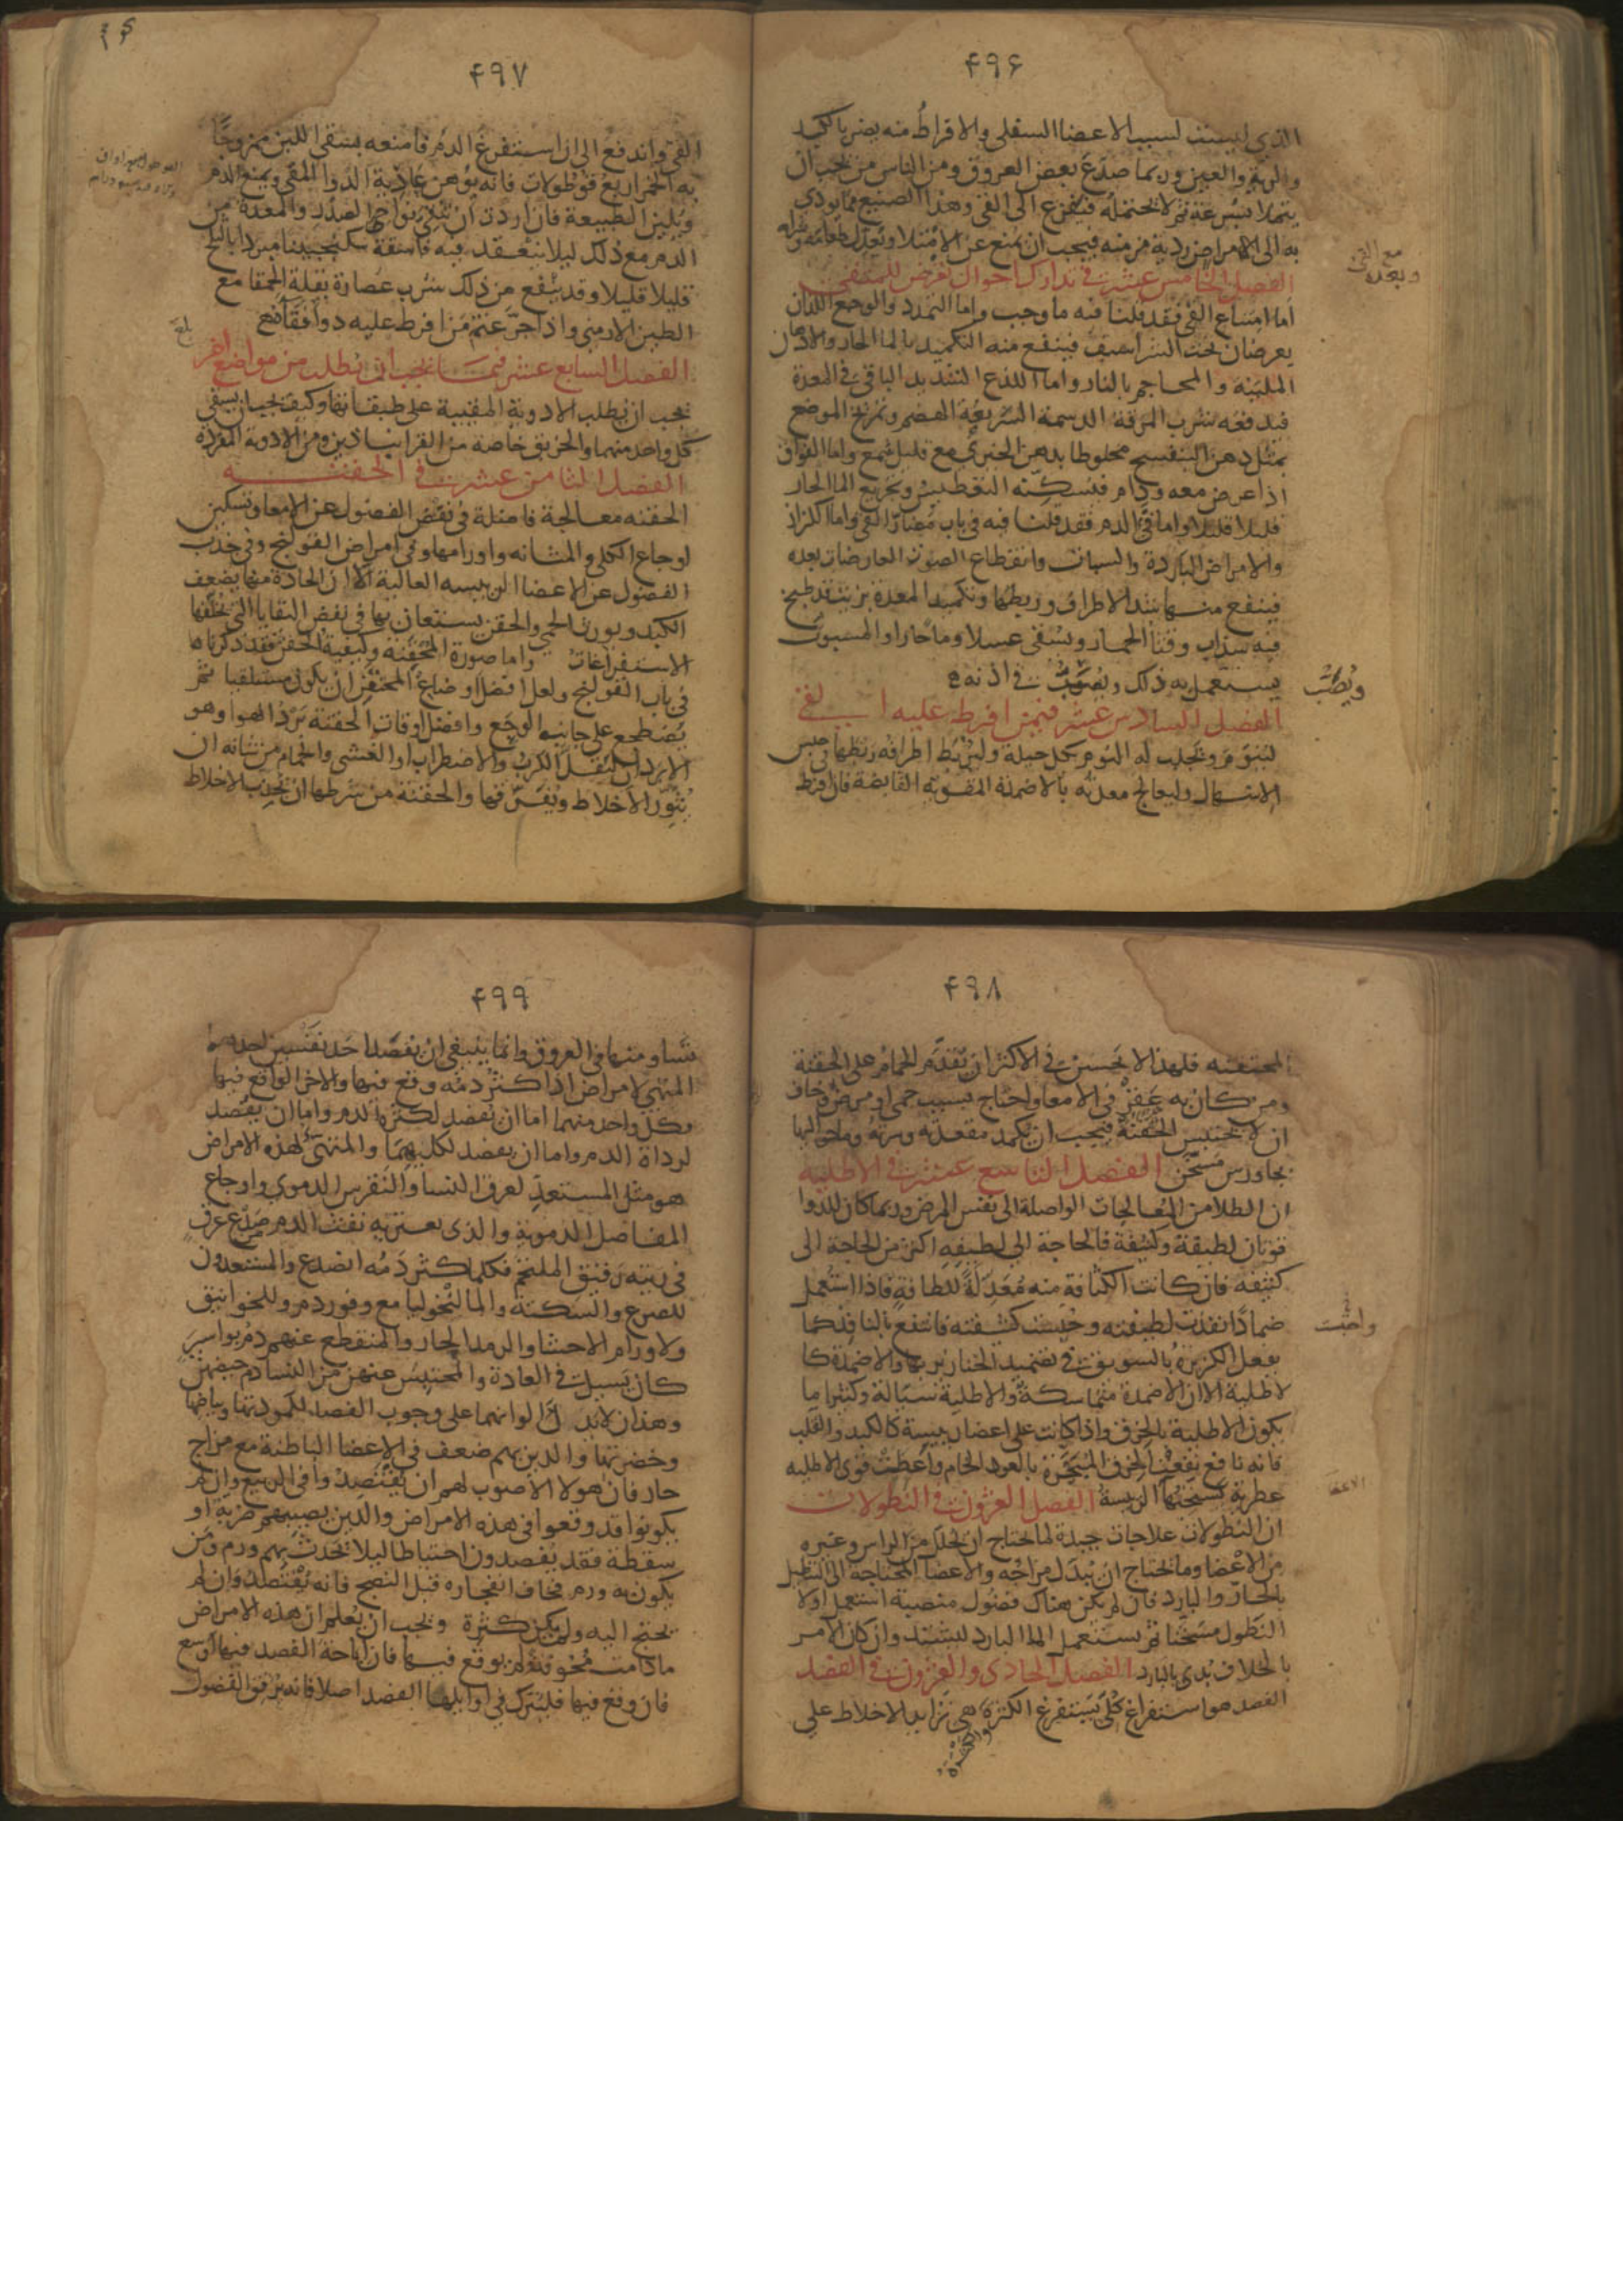 ۴۹۶
الذي ليست لسبب الاعضا السفلى والافراط منه يضر بالكبد
والريه والعين وربما صدع بعض العروق ومن الناس من يحب ان
يتملا بسرعة ثم لا يحتمله فيفزع الى القئ وهذا الصنيع مما يودي
به الى الامراض ردية مزمنه فيجب ان يمنع عن الامتلا ويعدل طعامه وشرابه
الفصل الخامس عشر في تدارك احوال تعرض للمتقي
اما امتناع القئ فقد قلنا فيه ما وجب واما التمدد والوجع اللذان
يعرضان تحت الشراسيف فينفع منه التكميد بالما الحار والادهان
الملينه والمحاجم بالنار واما اللذع الشديد الباقي في المعدة
فيدفعه شرب المرقة الدسمة السريعة الهضم وتمريخ الموضع
بمثل دهن البنفسج مخلوطا بدهن الخيري مع قليل شمع واما الفواق
اذا عرض معه ودام فيسكنه التعطيش وتجريع الما الحار
قليلا قليلا واما قئ الدم فقد قلنا فيه في باب مضار القئ واما الكزاز
والامراض الباردة والسبات وانقطاع الصوت العارضات بعده
فينفع منها شد الاطراف وربطها وتكميد المعدة بزيت قد طبخ
فيه سذاب وقثا الحمار ويسقى عسلا وما حارا والمسبوت
يستعمل به ذلك ويصب في اذنه
الفصل السادس عشر فيمن افرط عليه القئ
لينوم ويجلب له النوم بكل حيلة وليربط اطرافه ربطها في حبس
الاسهال وليعالج معدته بالاضمدة المقوية القابضة فان افرط
مع القئ
وبعده
ويصب
۴۹۷
القئ واندفع الى ان استفرغ الدم فامنعه بسقي اللبن ممزوجا
به الخمر اربع قوطولات فانه يوهن عادية الدوا المقئ ويمنع الدم
ويلين الطبيعة فان اردت ان تنقي نواحي الصدر والمعدة من
الدم مع ذلك ليلا ينعقد فيه فاسقه سكنجبينا مبردا بالثلج
قليلا قليلا وقد ينفع من ذلك شرب عصارة بقلة الحمقا مع
الطين الارمني واذا جرعته من افرط عليه دوا قئا نفع
الفصل السابع عشر فيما يجب ان يطلب من مواضع اخر
يجب ان يطلب الادوية المقيية على طبقاتها وكيف يجب ان يسقى
كل واحد منهما والخربق خاصة من القراباذين ومن الادوية المفرده
الفصل الثامن عشر في الحقنه
الحقنه معالجة فاضلة في نفض الفضول عن الامعا وتسكين
اوجاع الكلى والمثانه واورامها وفي امراض القولنج وفي جذب
الفضول عن الاعضا الرييسه العالية الا ان الحادة منها يضعف
الكبد ويورث الحمى والحقن يستعان بها في نفض البقايا التي تخلفها
الاستفراغات واما صورة المحقنه وكيفية الحقن فقد ذكرناها
في باب القولنج ولعل افضل اوضاع المحتقن ان يكون مستلقيا ثم
يضطجع على جانب الوجع وافضل اوقات الحقنة برد الهوا وهو
الابردان ليقل الكرب والاضطراب او الغشي والحمام من شانه ان
يثور الاخلاط ويفرقها والحقنة من شرطها ان تجذب الاخلاط
بلغ
۴۹۸
المحتقنه فلهذا لا يحسن في الاكثر ان يقدم الحمام على الحقنة
ومن كان به عقر في الامعا واحتاج بسبب حمى او مرض خاف
ان لا يحتبس الحقنة فيجب ان يكمد مقعدته وسرته وما حواليها
بجاورس مسخن الفصل التاسع عشر في الاطليه
ان الطلا من المعالجات الواصلة الى نفس المرض وربما كان للدوا
قوتان لطيفة وكثيفة فالحاجة الى لطيفه اكثر من الحاجة الى
كثيفه فان كانت الكثافة منه معدلة للطافة فاذا استعمل
ضمادا نفذت لطيفته وحبست كثيفته فانتفع بالنافذ كما
يفعل الكزبرة بالسويق في تضميد الخنازير بها والاضمدة كا
لاطلية الا ان الاضمدة متماسكة والاطلية سيالة وكثيرا ما
يكون الاطلية بالخرق واذا كانت على اعضا رييسة كالكبد والقلب
فانه نافع نفعت الخرق المبخرة بالعود الخام واعطت قوى الاطليه
عطرية تستحبها الرييسة الفصل العشرون في النطولات
ان النطولات علاجات جيدة لما يحتاج ان يحلل من الراس وغيره
من الاعضا وما يحتاج ان يبدل مزاجه والاعضا المحتاجة الى التنطيل
بالحار والبارد فان لم يكن هناك فضول منصبة استعمل اولا
النطول مسخنا ثم يستعمل الما البارد ليشتد وان كان الامر
بالخلاف بدى بالبارد الفصل الحادي والعشرون في الفصد
الفصد هو استفراغ كلي يستفرغ الكثرة هي تزايد الاخلاط على
والكثرة
واحتبست
۴۹۹
تساو منها في العروق وانما ينبغي ان يفصد احد نفسين احدهما
المتهيي لامراض اذا كثر دمه وقع فيها والاخر الواقع فيها
وكل واحد منهما اما ان يفصد لكثرة الدم واما ان يفصد
لرداة الدم واما ان يفصد لكليهما والمتهيئ لهذه الامراض
هو مثل المستعد لعرق النسا والنقرس الدموي واوجاع
المفاصل الدموية والذي يعتريه نفث الدم من صدع عرق
في ريته رقيق الملتحم فكلما كثر دمه انصدع والمستعدون
للصرع والسكتة والمالنخوليا مع وفور دم وللخوانيق
ولاورام الاحشا والرمد الحار والمنقطع عنهم دم بواسير
كان يسيل في العادة والمحتبس عنهن من النسا دم حيضهن
وهذان لا يدل الوانهما على وجوب الفصد لكمودتها وبياضها
وخضرتها والذين بهم ضعف في الاعضا الباطنة مع مزاج
حار فان هولا الاصوب لهم ان يفتصدوا في الربيع وان لم
يكونوا قد وقعوا في هذه الامراض والذين يصيبهم ضربة او
سقطة فقد يفصدون احتياطا ليلا يحدث بهم ورم ومن
يكون به ورم يخاف انفجاره قبل النضج فانه يفتصد وان لم
يحتج اليه ولم يكن كثرة ويجب ان يعلم ان هذه الامراض
ما دامت مخوفة ولم يوقع فيها فان اباحة الفصد فيها اوسع
فان وقع فيها فليترك في اوايلها الفصد اصلا فانه يرقق الفضول